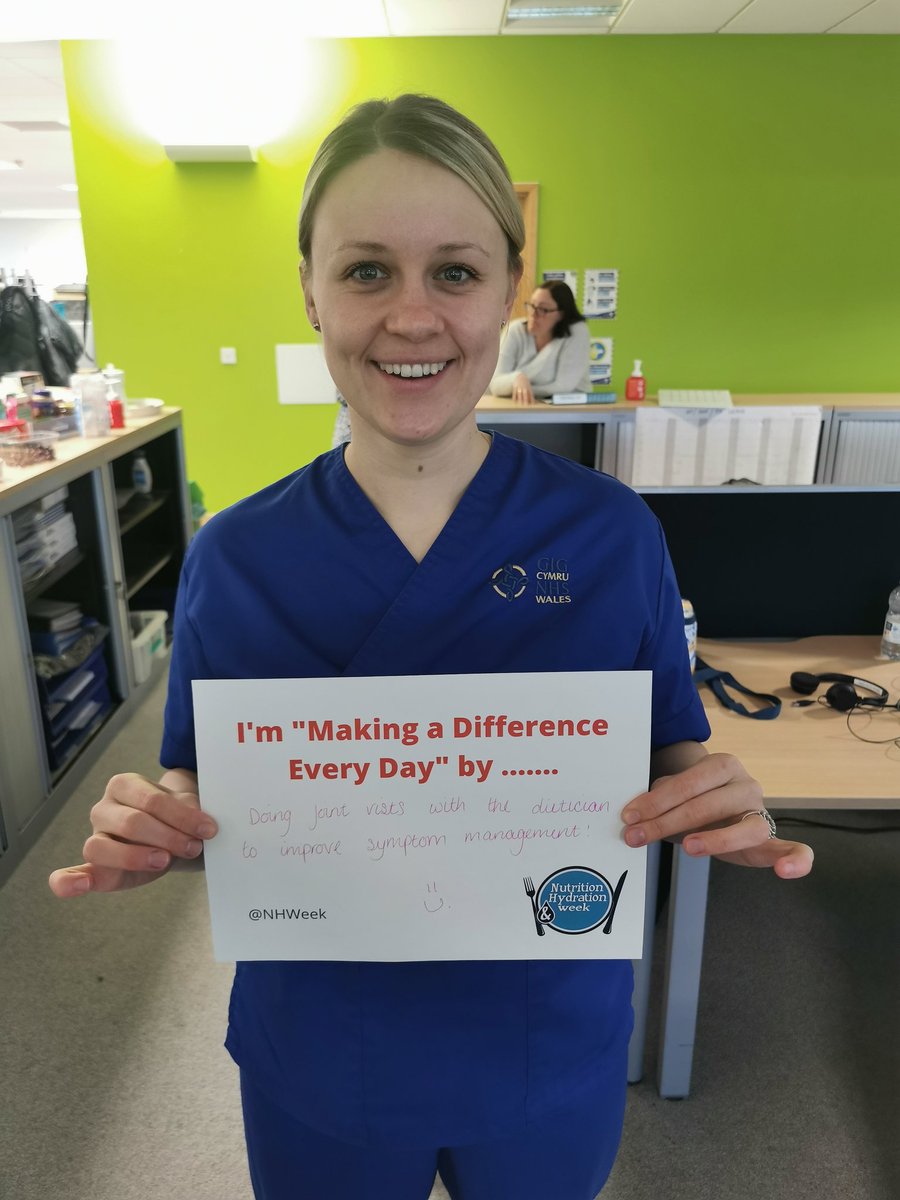 GIG
CYMRU
NHS
WALES
I'm "Making a Difference
Every Day" by .......
Doing joint vists with the dietician
to improve symptom management!
@NHWeek
Nutrition
Hydration
& week